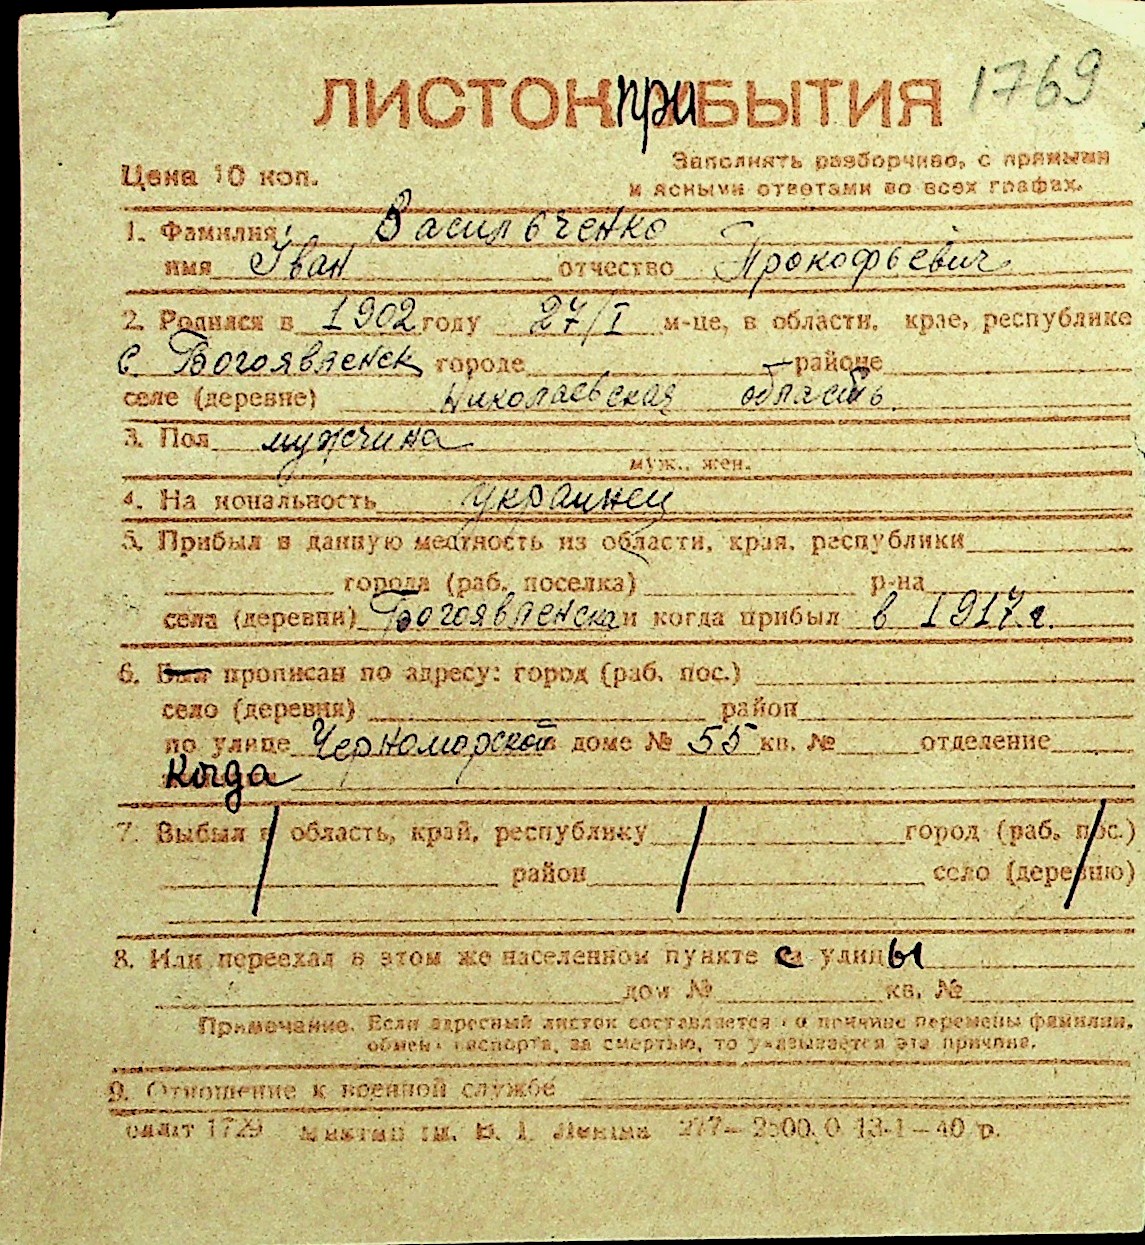 1769
ЛИСТОК прибЫТИЯ
Цена 10 коп.
Заполнять разборчиво, с прямыми
и ясными ответами во всех графах.
1. Фамилия Васильченко
имя Іван отчество Прокофьевич
2. Родился в 1902 году 27/I м-це, в области, крае, республике
с Богоявленск городе районе
селе (деревне) Николаевская область
3. Пол мужчина
муж., жен.
4. Национальность украинец
5. Прибыл в данную местность из области, края, республики
города (раб. поселка) р-на
села (деревни) Богоявленска и когда прибыл в 1917 г.
6. Был прописан по адресу: город (раб. пос.)
село (деревня) район
по улице Черноморской в доме № 55 кв. № отделение
Когда
7. Выбыл в область, край, республику город (раб. пос.)
район село (деревню)
8. Или переехал в этом же населенном пункте с улицы
дом № кв. №
Примечание. Если адресный листок составляется по причине перемены фамилии,
обмена паспорта, за смертью, то указывается эта причина.
9. Отношение к военной службе
1729 им. В. І. Леніна 277—2500.0 13-1—40 р.